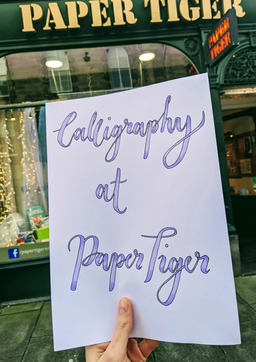 PAPER TIGER
PAPER
TIGER
Calligraphy
at
Paper Tiger